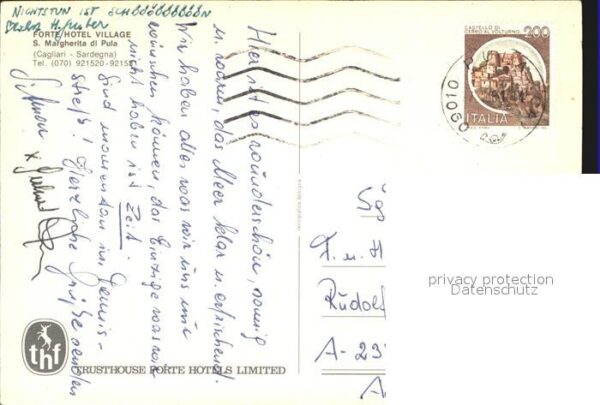 NICHTSTUN IST SCHÖÖÖÖÖÖÖÖÖN
FORTE/HOTEL VILLAGE
S. Margherita di Pula
(Cagliari - Sardegna)
Tel. (070) 921520 - 92151
Hier ist es wunderschön, sonnig
u. warm, das Meer klar u. erfrischend.
Wir haben alles was wir uns nur
wünschen können, das Einzige was wir
nicht haben ist Zeit.
Sind momentan im Genuss-
streß! Herzliche Grüße senden
thf
TRUSTHOUSE FORTE HOTELS LIMITED
CASTELLO DI
CERRO AL VOLTURNO
200
ITALIA
09010
F. u. H
Rudolf
A-23
A
privacy protection
Datenschutz